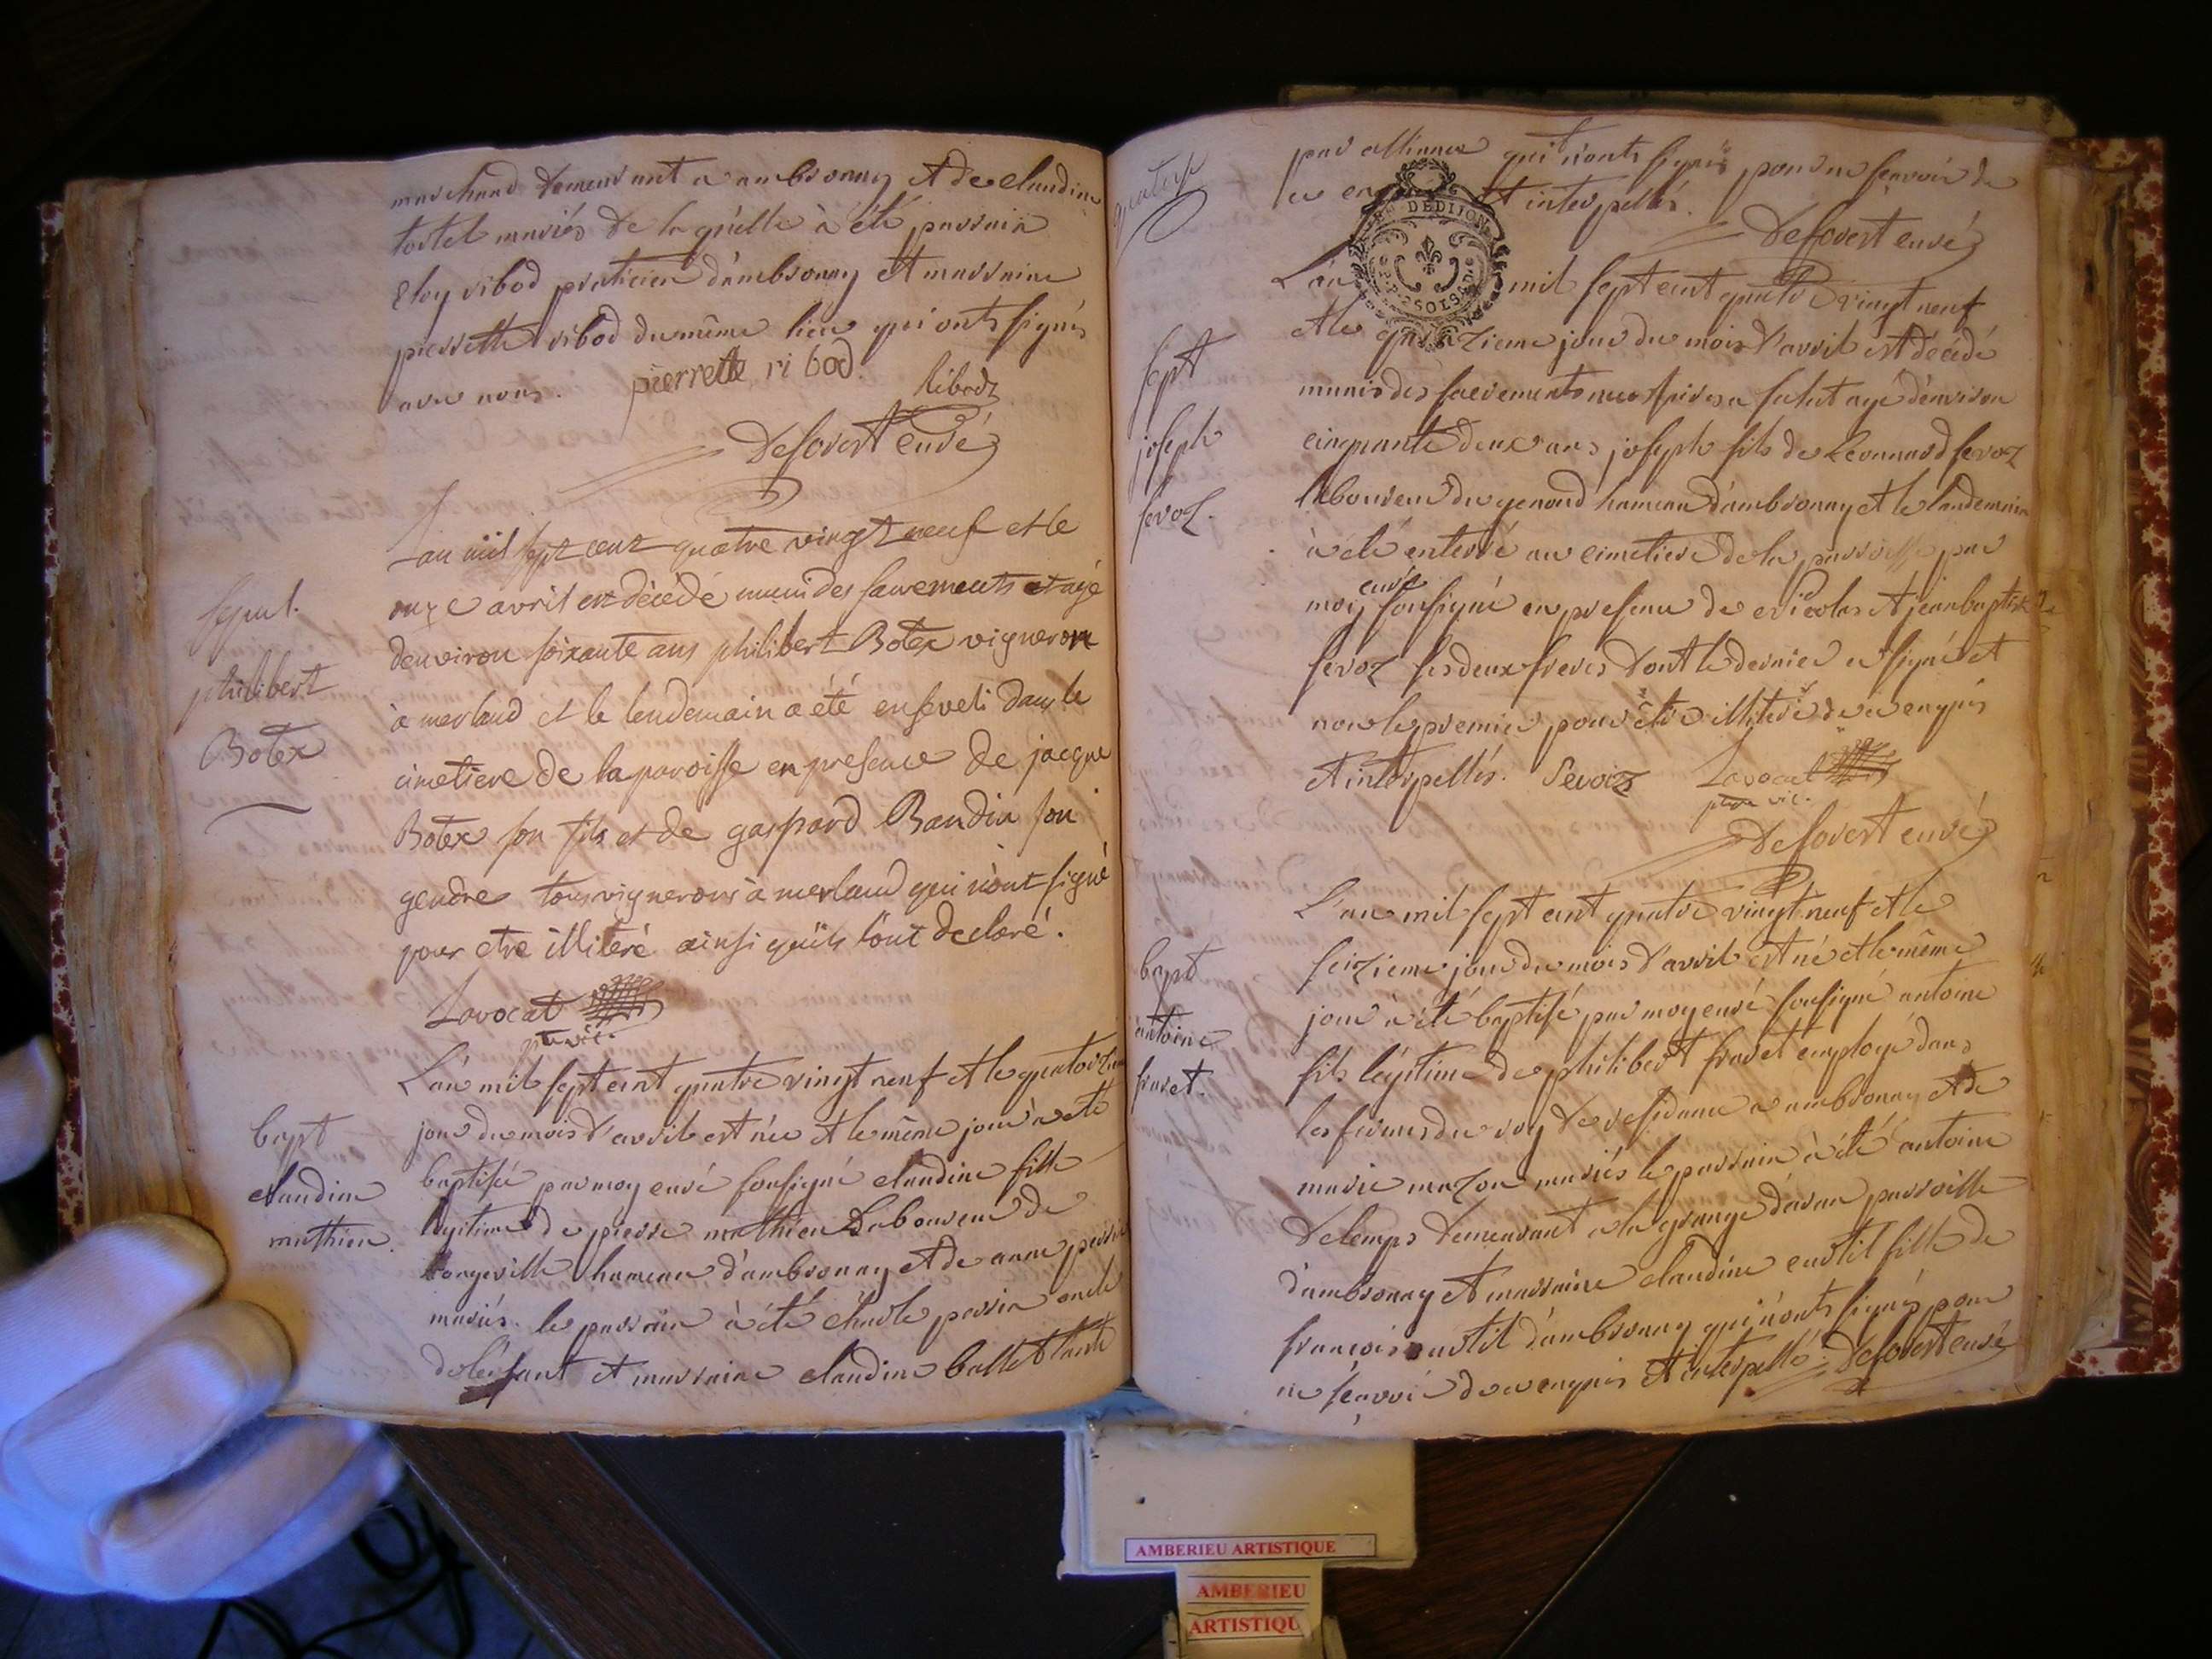 marchand demeurant a ambronay et de claudine
tortel mariés de la quelle à été parrain
Eloy ribod praticien d'ambronay et marraine
pierrette ribod du même lieu qui onts signés
avec nous. pierrette ri bod. Ribodz
Desovert curé
sepul.
philibert
Botex
L'an mil sept cent quatre vingt neuf et le
onze avril est décédé muni des sacrements et agé
denviron soixante ans philibert Botex vigneron
à merland et le lendemain a été enseveli dans le
cimetiere de la paroisse en presence de jacque
Botex son fils et de gaspard Baudin son
gendre tous vignerons à merland qui n'ont signé
pour etre illiteré ainsi qu'ils l'ont declaré.
Lavocat
ptre vic.
bapt
claudine
mathieu.
L'an mil sept cent quatre vingt neuf et le quatorzieme
jour du mois d'avril est née et le même jour à été
baptisé par moy curé sousigné claudine fille
legitime de pierre mathieu Laboureur de
longeville hameau d'ambronay et de anne perrin
mariés. le parrain à été charle perrin oncle
de lenfant et marraine claudine ballet tante
quatorze
par alliance qui n'onts signés pour ne scavoir de
ce et interpellés.
Desovert curé
GEN DE DIJON
2 SOLS
sept
joseph
fevoz.
L'an mil sept cent quatre vingt neuf
et le quinzieme jour du mois d'avril est décédé
munis des sacrements age d'environ
cinquante deux ans joseph fils de Leonnard fevoz
laboureur du genoud hameau d'ambronay et le landemain
à été enterré au cimetiere de la parroisse par
moy curé sousigné en presence de nicolas et jean baptiste
fevoz ses deux freres dont le dernier a signé et
non le premier pour être illiteré de ce enquis
et interpellés. Fevoz Lavocat
ptre vic.
Desovert curé
bapt
antoine
fravet.
L'an mil sept cent quatre vingt neuf et le
seizieme jour du mois d'avril est né et le même
jour à été baptisé par moy curé sousigné antoine
fils légitime de philibert fravet employé dans
les fermes du roy de residance a ambronay et de
marie mazon mariés le parrain à été antoine
Delemps demeurant a la grange d'avan parroisse
d'ambronay et marraine claudine curtil fille de
francois curtil d'ambronay qui n'onts signés pour
ne scavoir de ce enquis et interpellé. Desovert curé
AMBERIEU ARTISTIQUE
AMBERIEU
ARTISTIQU